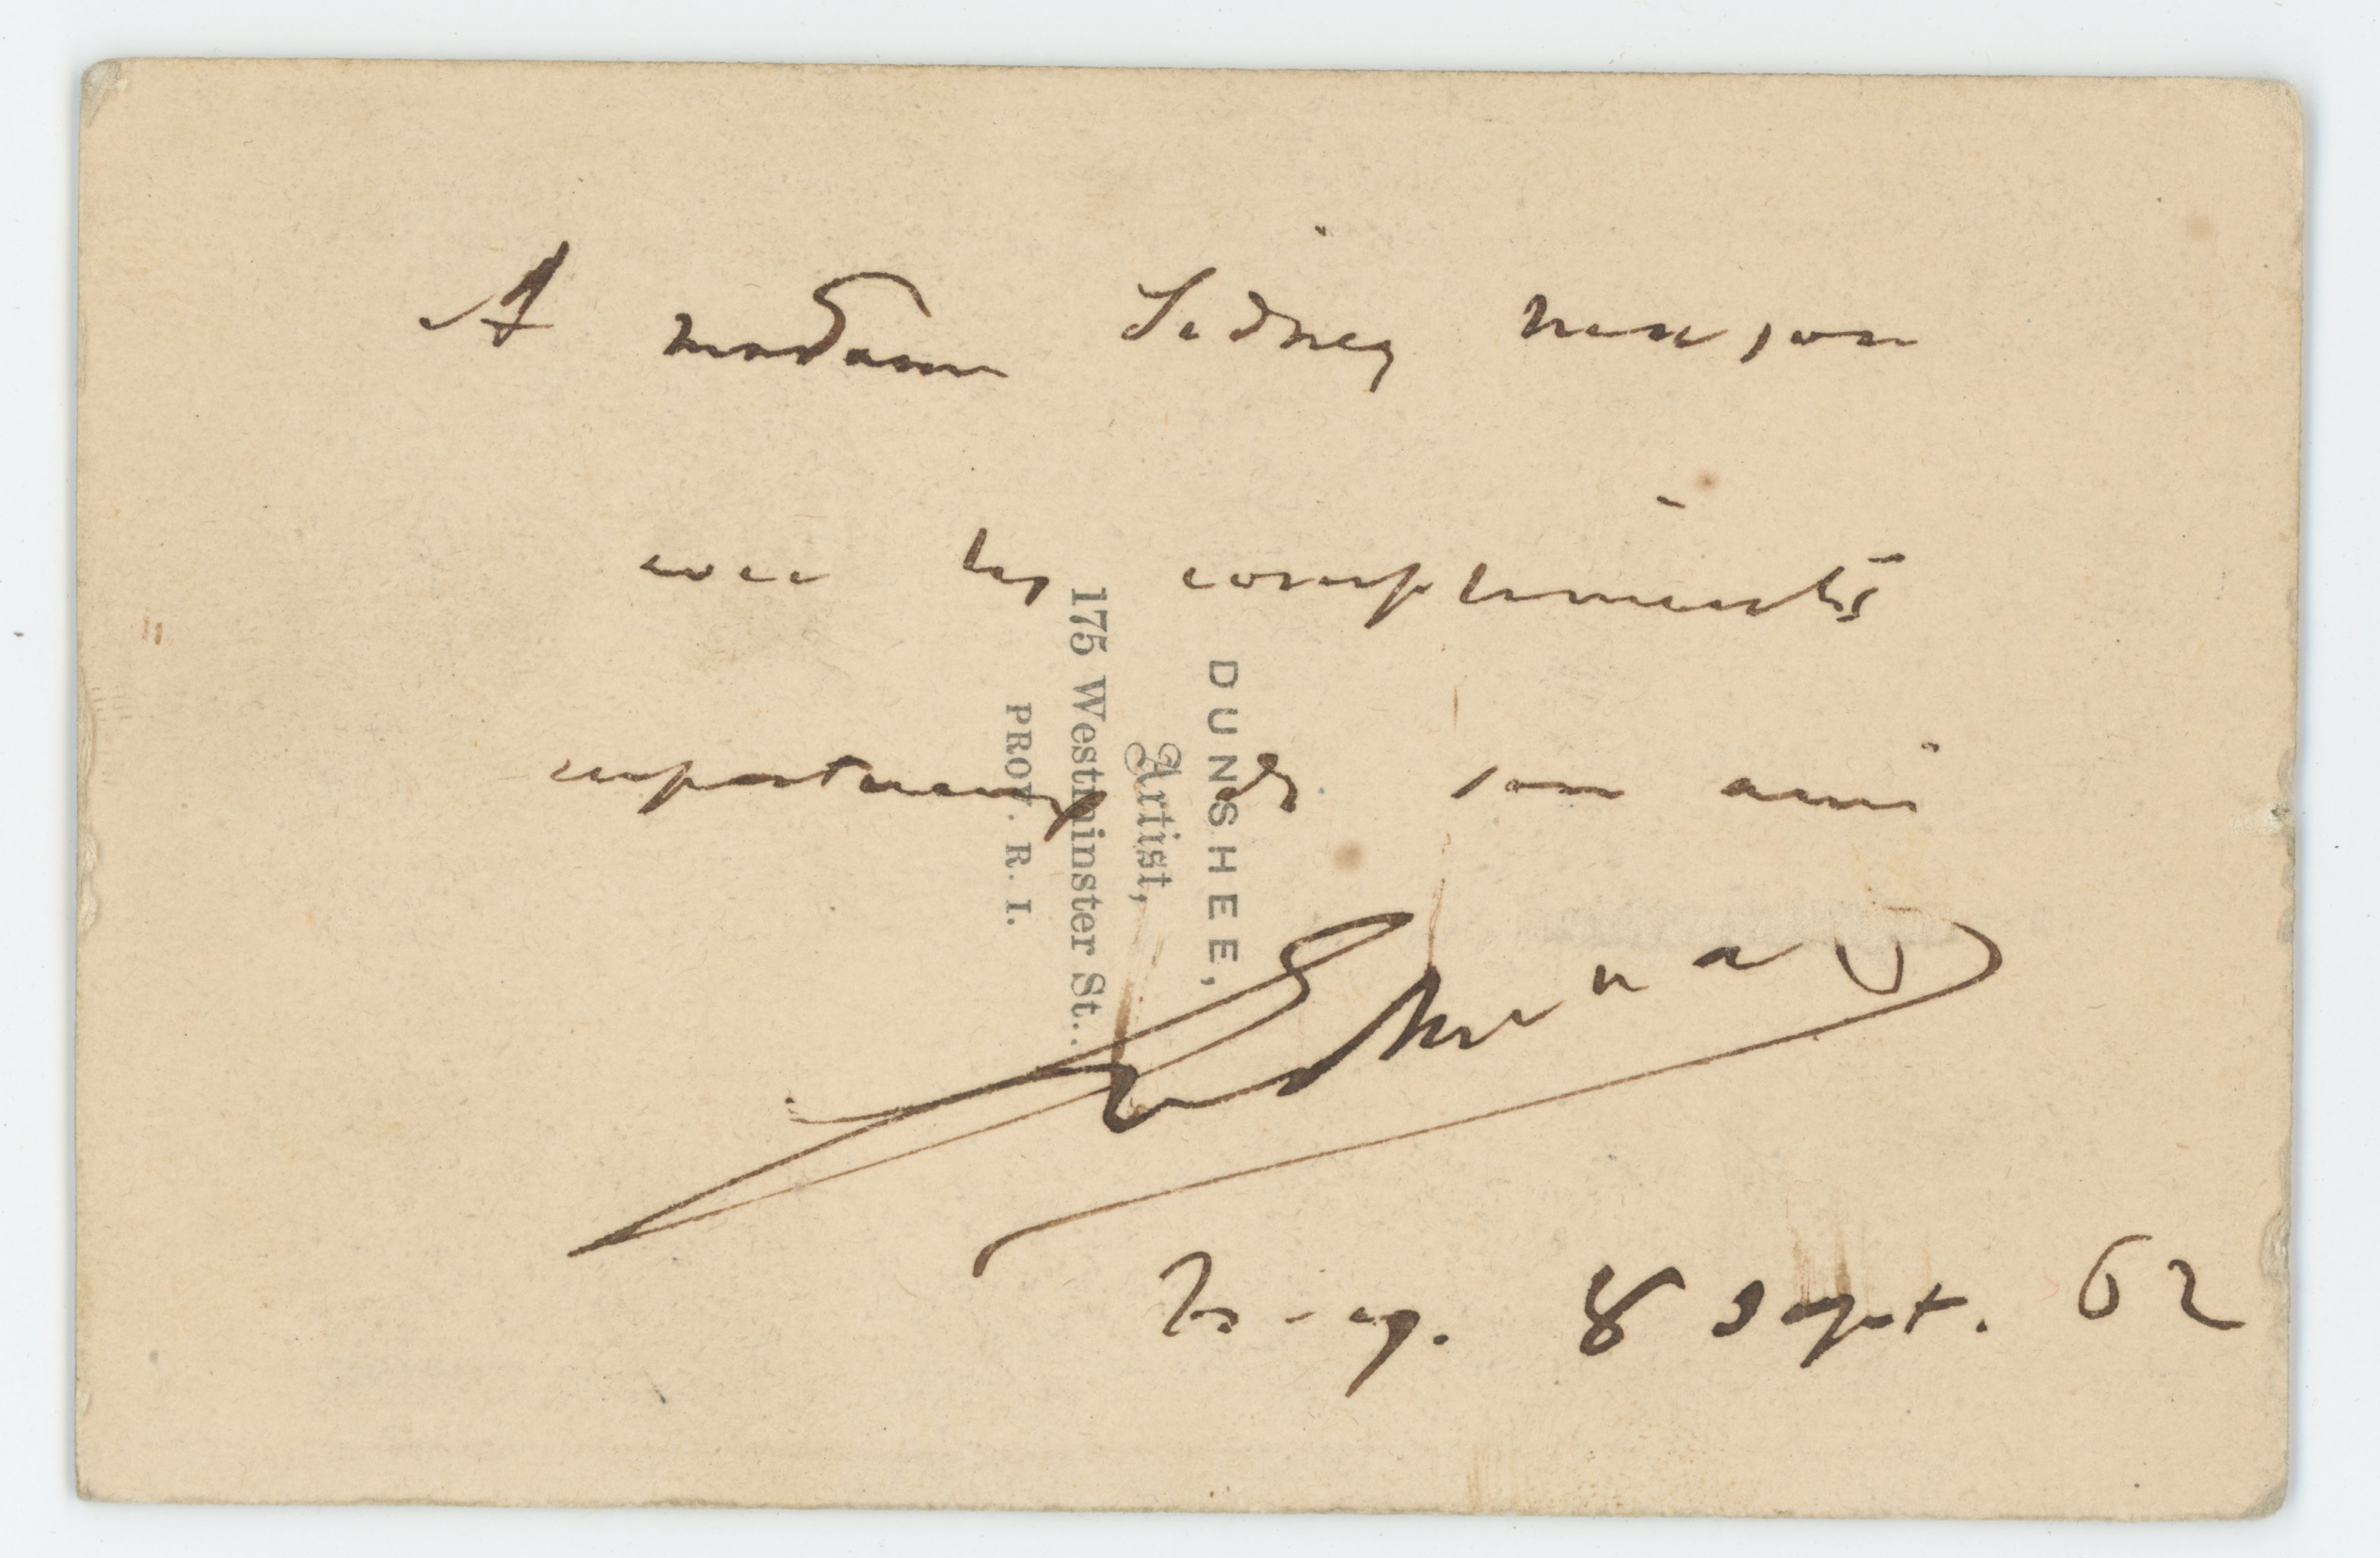 A madame Sidney
avec les compliments
de son ami
8 Sept. 62
DUNSHEE,
Artist,
175 Westminster St.
PROV. R. I.